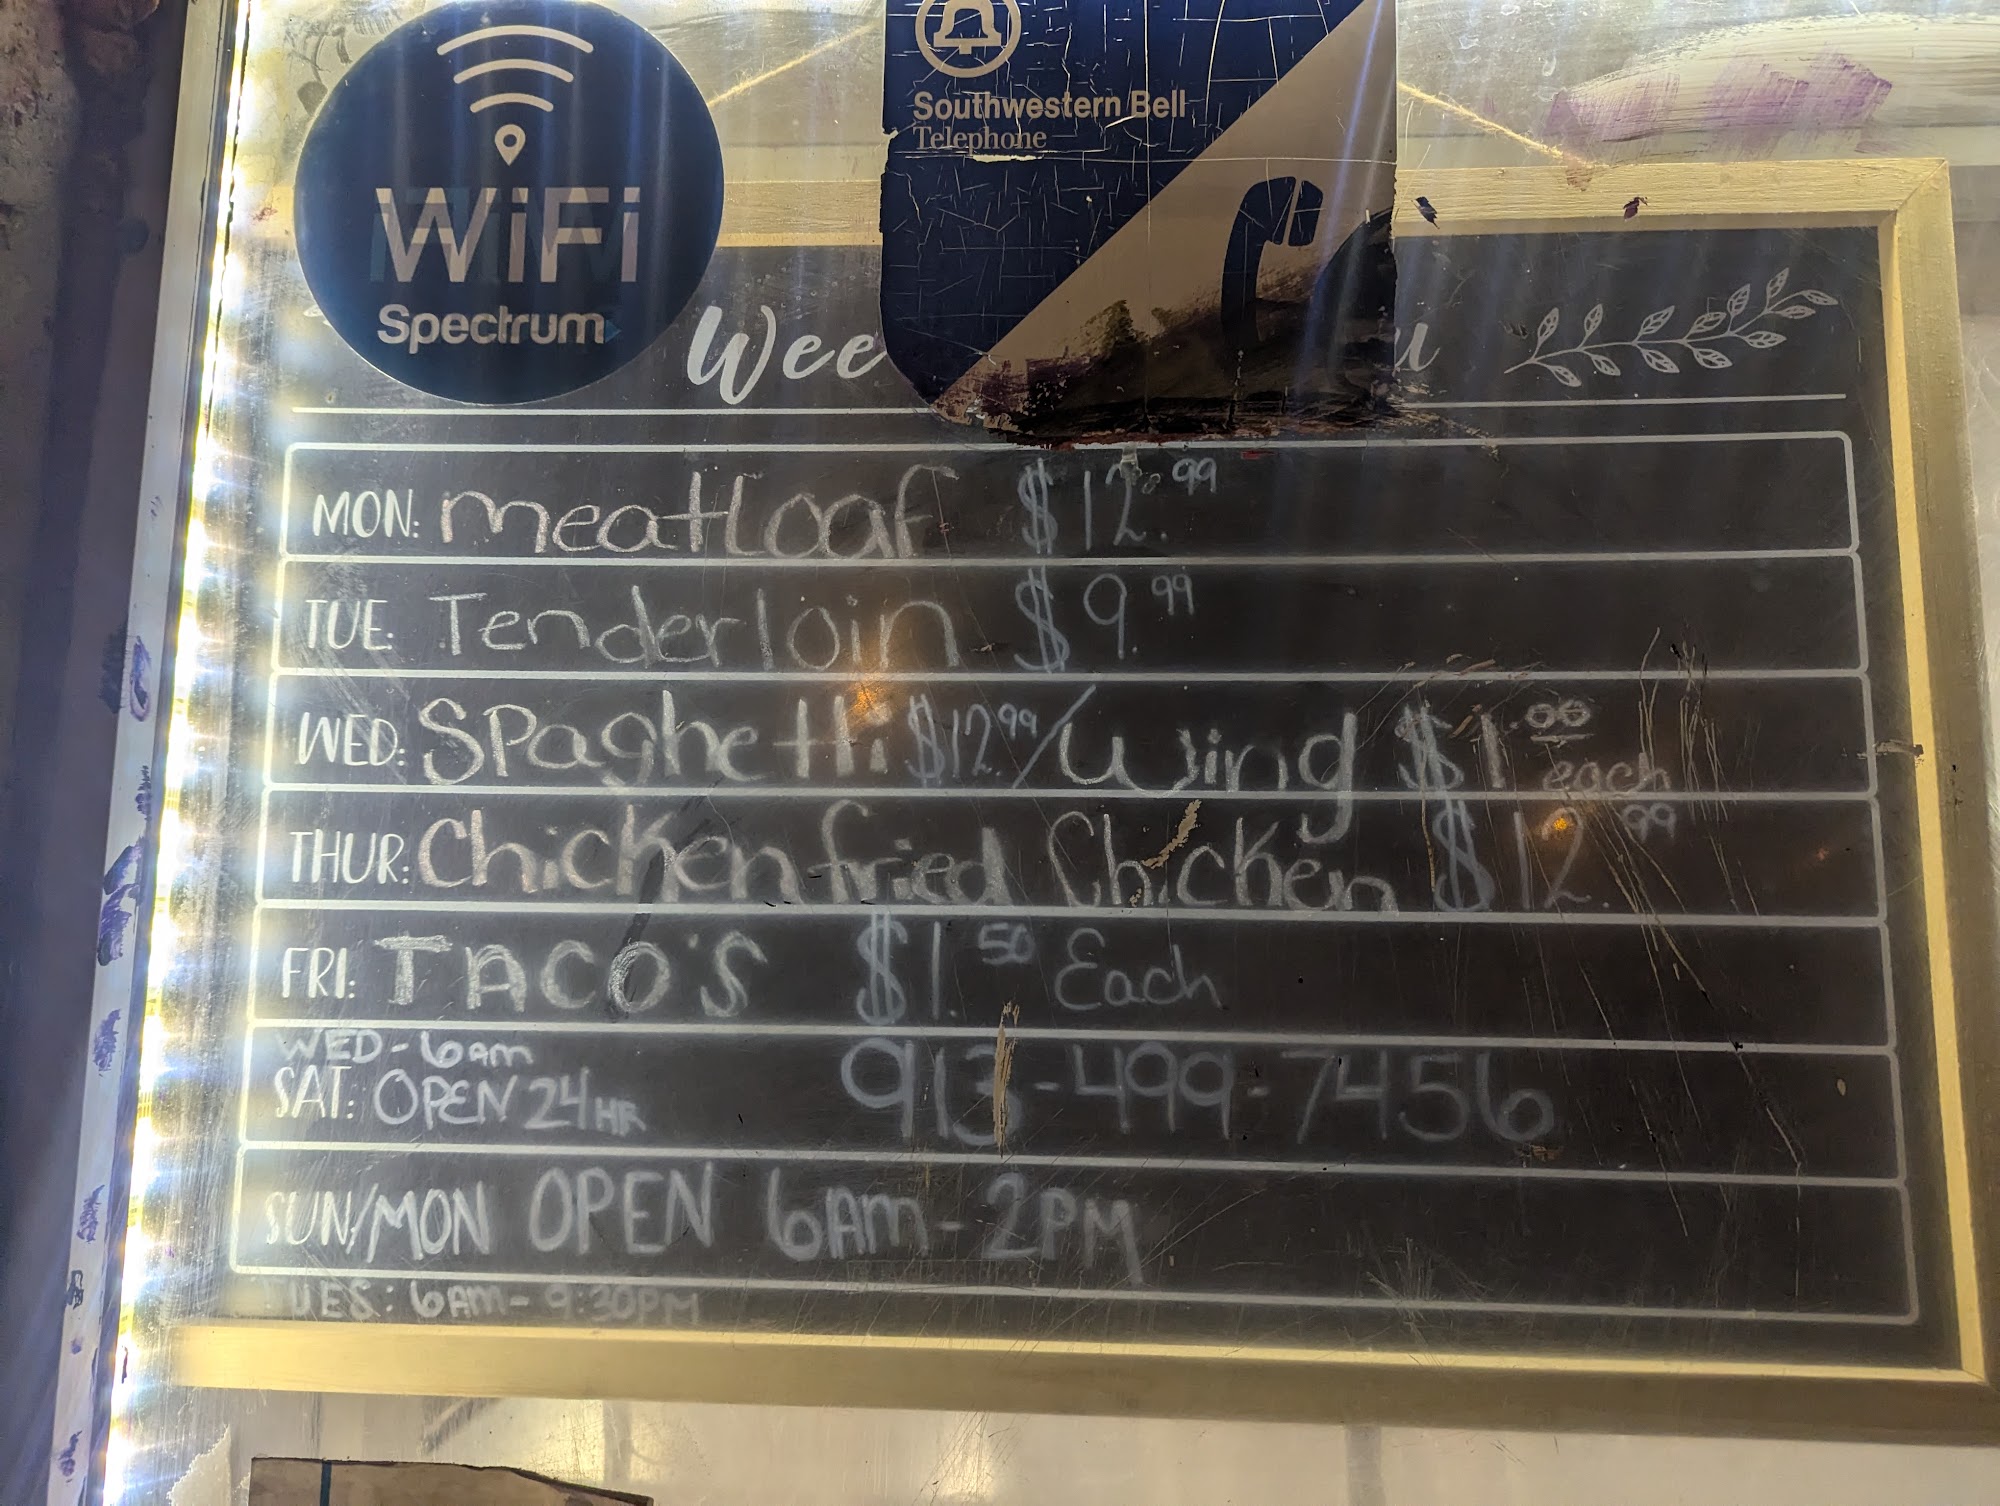 WiFi
Spectrum
Southwestern Bell
Telephone
Wee
u
MON: meatloaf $12.99
TUE: Tenderloin $9.99
WED: Spaghetti $12.99/Wing $1.00 each
THUR: Chicken fried Chicken $12.99
FRI: TACO'S $1.50 Each
WED-6am
SAT: OPEN 24HR 913-499-7456
SUN/MON OPEN 6AM-2PM
TUES: 6AM-9:30PM